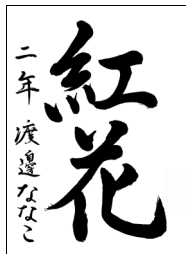 紅花
二年 渡邊ななこ